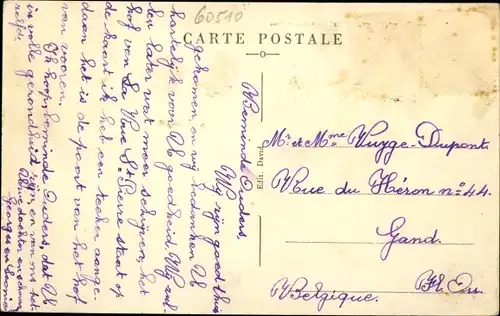 60510
CARTE POSTALE
Edit. David
Beminde Ouders,
Wij zijn goed thuis
gekomen, en wij bedanken U
hartelijk voor U goedheid. Wij zul-
len later wat meer schrijven, het
hof van La Vove St Pierre staat op
de kaart ik het een teeken aange-
daan het is de poort van het hof
van vooren,
Ik hoop beminde Ouders, dat U
in volle gezondheid zijn, en van ons het-
zelfde
Uwe dochter en schoonz.
Georges en
Mr et Mme Vuyge-Dupont.
Rue du Héron no 44.
Gand.
Fl. Or.
Belgique.